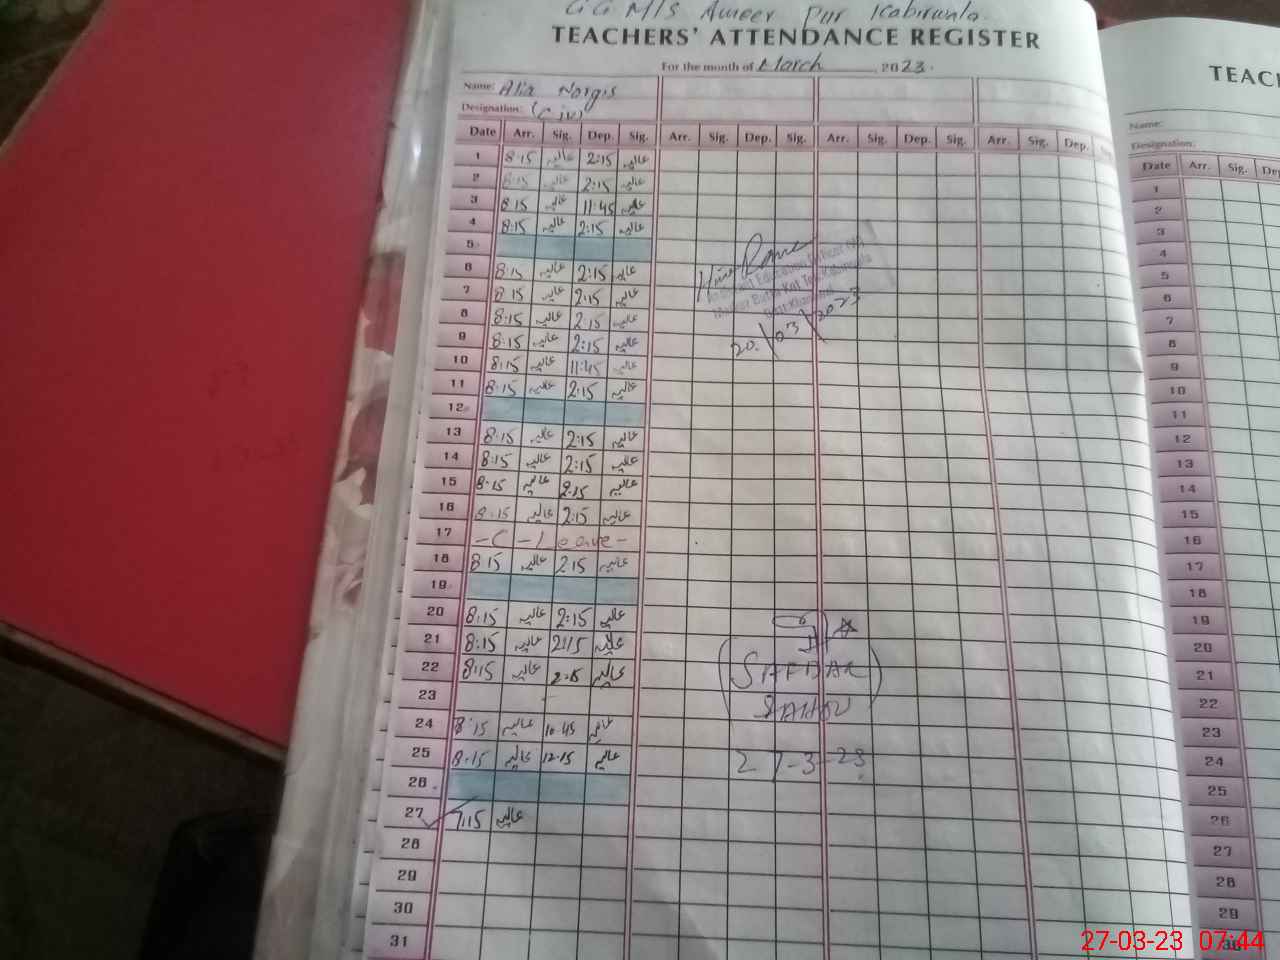 GG M/S Ameer Pur Kabirwala
TEACHERS' ATTENDANCE REGISTER
For the month of March 2023.
Name: Alia Nargis
Designation:
Date Arr. Sig. Dep. Sig. Arr. Sig. Dep. Sig. Arr. Sig. Dep. Sig. Arr. Sig. Dep.
1 8:15 عالیہ 2:15 عالیہ
2 8:15 عالیہ 2:15 عالیہ
3 8:15 عالیہ 11:45 عالیہ
4 8:15 عالیہ 2:15 عالیہ
5
6 8:15 عالیہ 2:15 عالیہ
7 8:15 عالیہ 2:15 عالیہ
8 8:15 عالیہ 2:15 عالیہ
9 8:15 عالیہ 2:15 عالیہ
10 8:15 عالیہ 11:45 عالیہ
11 8:15 عالیہ 2:15 عالیہ
12
13 8:15 عالیہ 2:15 عالیہ
14 8:15 عالیہ 2:15 عالیہ
15 8:15 عالیہ 2:15 عالیہ
16 8:15 عالیہ 2:15 عالیہ
17 -C-Leave-
18 8:15 عالیہ 2:15 عالیہ
19
20 8:15 عالیہ 2:15 عالیہ
21 8:15 عالیہ 2:15 عالیہ
22 8:15 عالیہ 2:15 عالیہ
23
24 8:15 عالیہ 10:45 عالیہ
25 8:15 عالیہ 12:15 عالیہ
26
27 7:15 عالیہ
28
29
30
31
Assistant Education Officer
20/03/2023
(SAFDAR
27-3-23
TEACH
Name:
Designation:
Date Arr. Sig. Dep
1
2
3
4
5
6
7
8
9
10
11
12
13
14
15
16
17
18
19
20
21
22
23
24
25
26
27
28
29
27-03-23 07:44